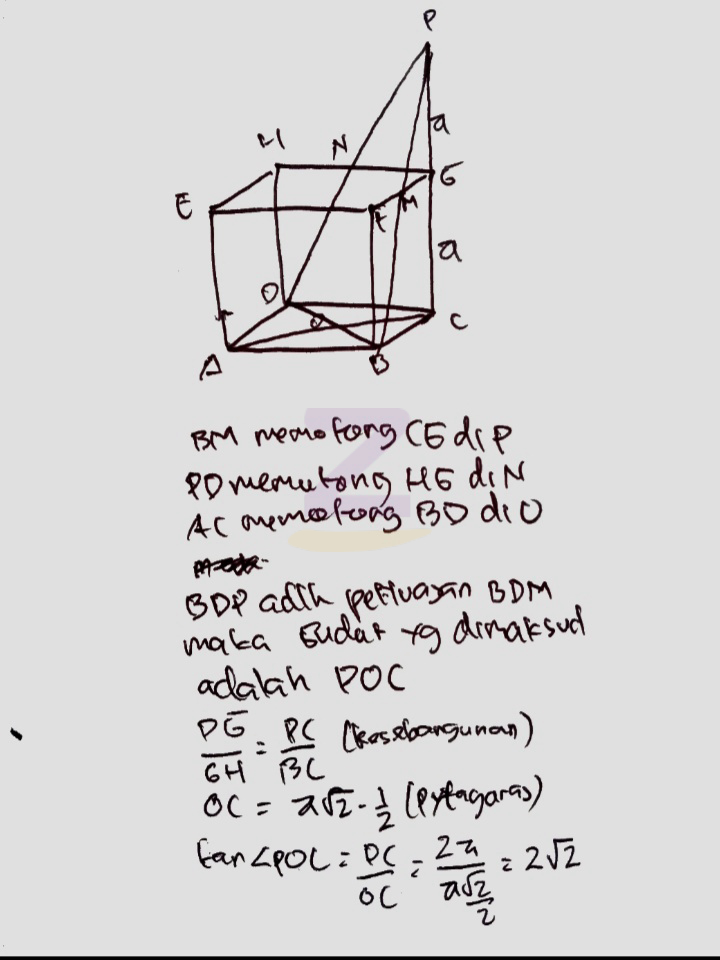 P
a
H N
G
E
F M
a
D
O
C
A
B
BM memotong CG di P
PD memotong HG di N
AC memotong BD di O
BDP adlh perluasan BDM
maka sudut yg dimaksud
adalah POC
PG/GM = PC/BC (kesebangunan)
OC = a√2 · 1/2 (pytagoras)
tan∠POC = PC/OC = 2a/(a√2/2) = 2√2